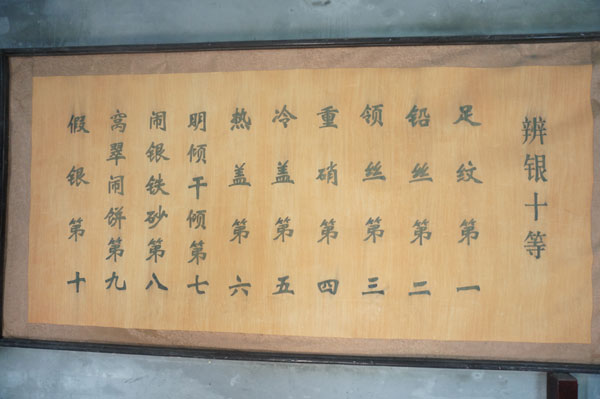 辨银十等
足纹第一
铅丝第二
领丝第三
重硝第四
冷盖第五
热盖第六
明倾干倾第七
闹银铁砂第八
窝翠闹饼第九
假银第十